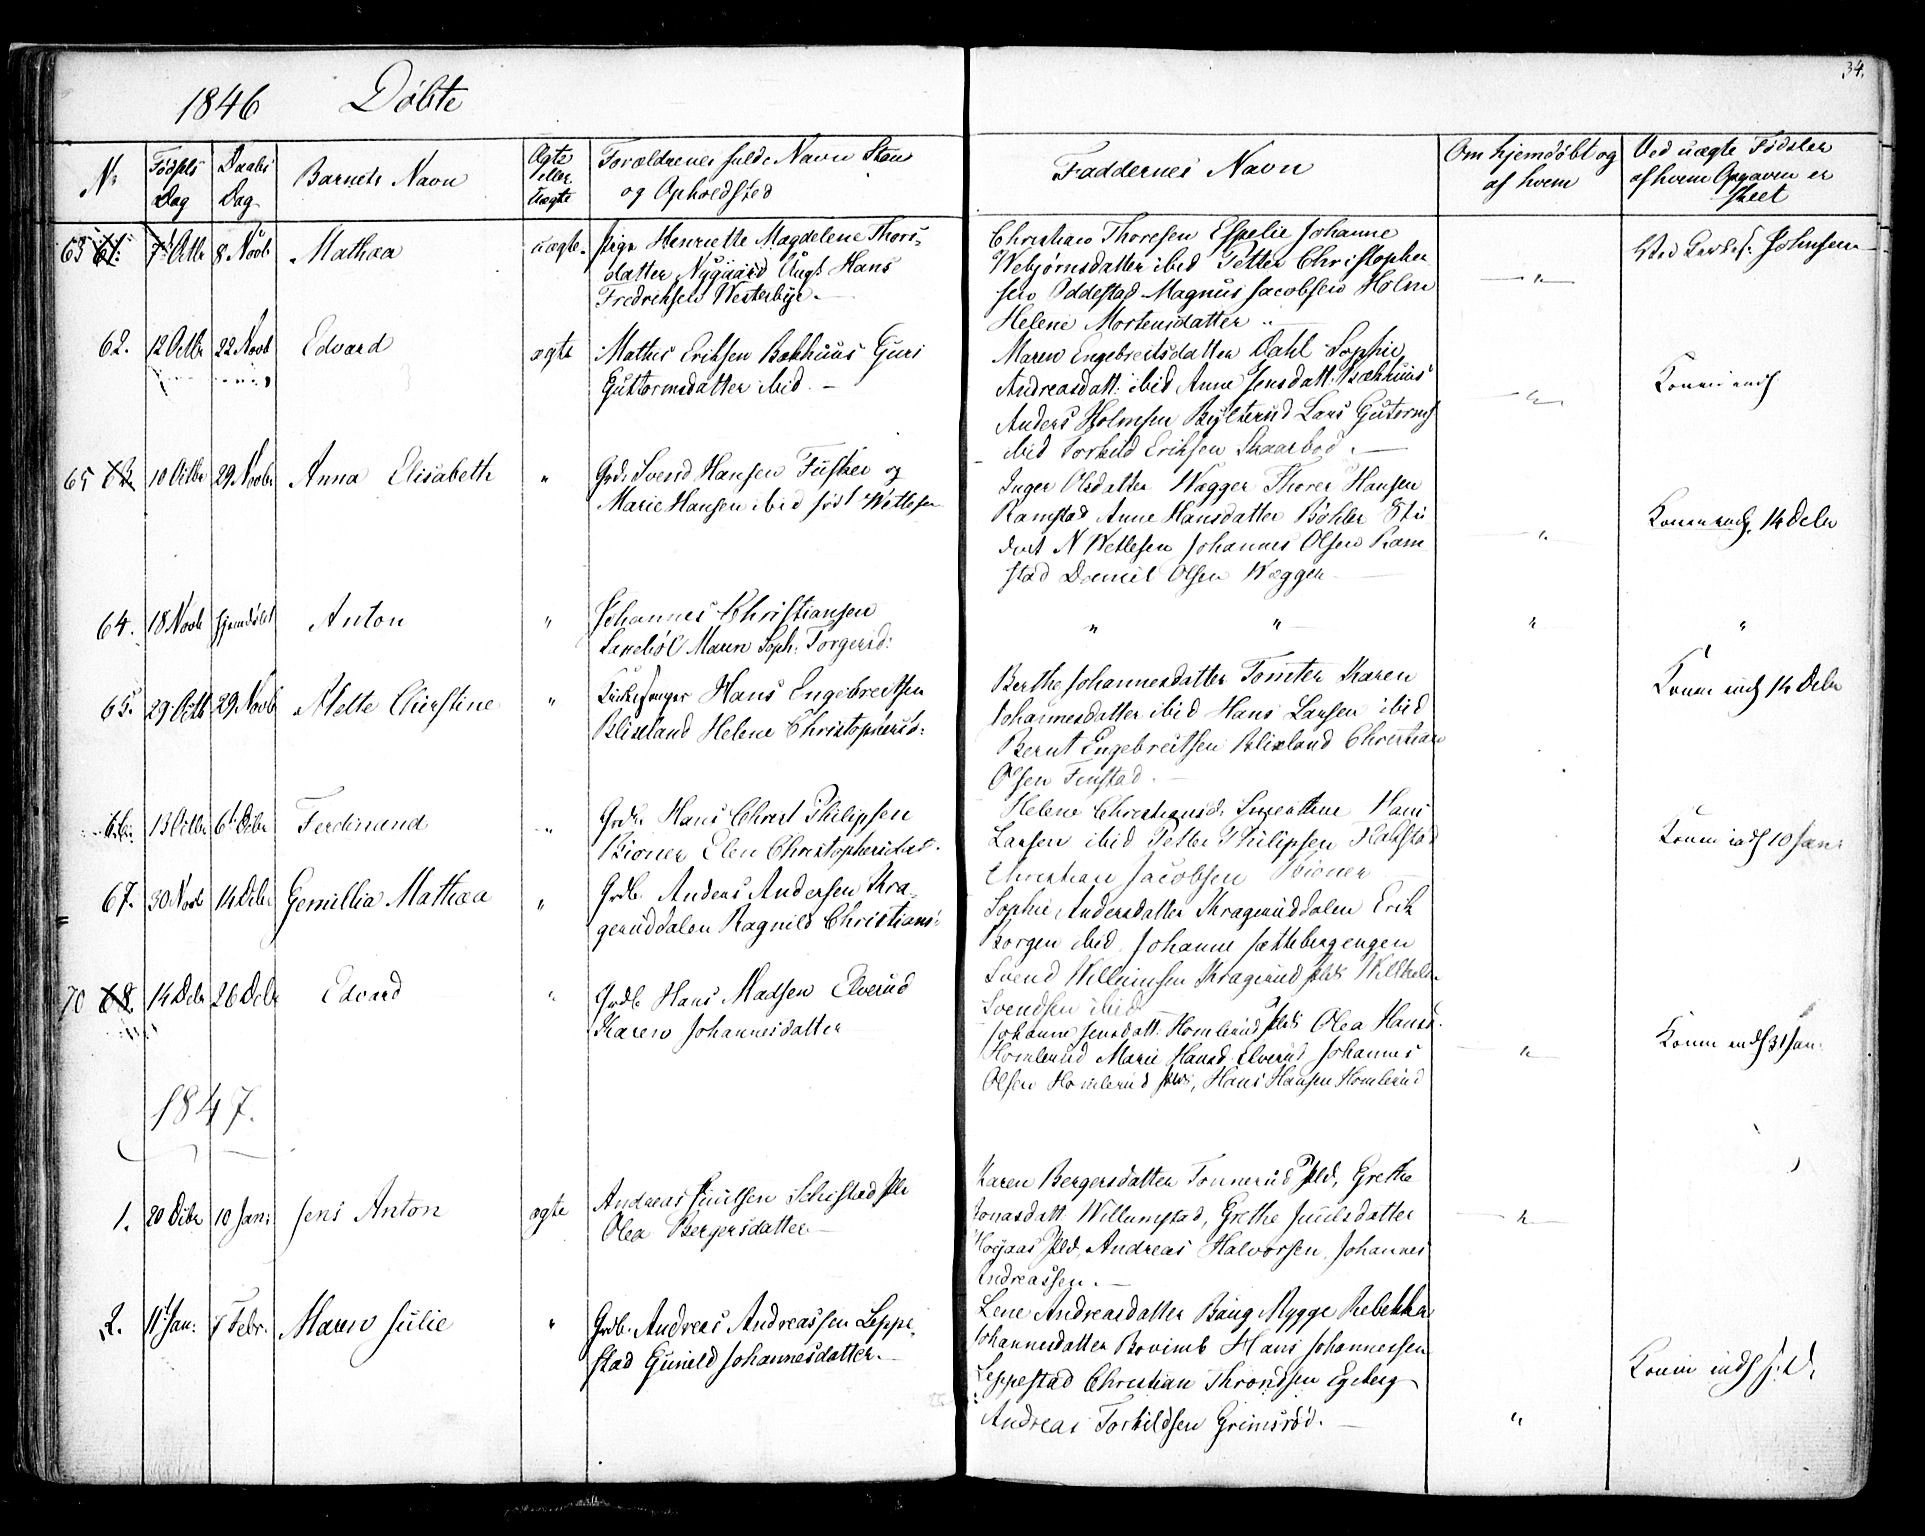 34.
1846 Døbte
Nr
Fødsels Dag
Daabs Dag
Barnets Navn
Ægte eller Uægte
Forældrenes fulde Navn Stan
og Opholdsted
Faddernes Navn
Om hjemdøbt og
af hvem
Ved uægte Fødsler
af hvem Opgaven er
skeet
63 61. 7 Octbr 8 Novb Mathea uægte. Pige Henriette Magdelene Thors-
datter Nygaard Ungk Hans
Fredriksen Westerbye.
Christian Thoresen Espelie Johanne
Webjørnsdatter ibid Petter Christopher
sen Oddestad Magnus Jacobsen Holm
Helene Mortensdatter
"
Johnsen
62. 12 Octbr 22 Novb Edvard ægte Mathis Eriksen Bakhuus Guri
Guttormsdatter ibid.
Maren Engebreitsdatter Dahl Sophie
Andreasdatt. ibid Anne Jensdatt. Bækhuus
Anders Holmsen Lars Gutorms
ibid Torkild Eriksen Skaarbød.
"
Konen inds
65 63. 10 Octbr 29 Novbr Anna Elisabeth " Grdr. Svend Hansen Fusker og
Marie Hansen ibid født Wetlesen
Inger Olsdatter Wægger Thorer Hansen
Ramstad Anne Hansdatter Bøhler Stu
dent N Wetlesen Johannes Olsen Ram
stad Daniel Olsen Wægger
"
Konen inds. 14 Debr
64. 18 Novb hjemdøbt Anton " Johannes Christiansen
Maren Soph: Torgersd:
" " " "
65. 29 Octb 29 Novb Mette Christine " Kirkesanger Hans Engebreitsen
Blixland Helene Christophersd:
Berthe Johannesdatter Tomter Karen
Johannesdatter ibid Hans Larsen ibid
Bernt Engebreitsen Blixland Christian
Olsen Finstad.
Konen inds 14 Debr
66. 13 Octbr 6t Debr Ferdinand " Grdr. Hans Christ Philipsen
Elen Christophersdat.
Helene Christiansd. Hans
Larsen ibid Petter Philipsen Rakstad
Christian Jacobsen
Konen inds 10 Jan:
67. 30 Novb 14 Debr Gemillia Mathea " Grdb. Anders Andersen Kra-
geruddalen Ragnild Christians:
Sophie Andersdatter Krageruddalen Erik
Borgen ibid. Johanne Sættebergengen
Svend Willumsen Kragerud Plds Wilhelm
Svendsen ibid
70 68. 14 Debr 26 Debr Edvard " Grdb Hans Madsen Elverud
Karen Johannesdatter
Johanne Jensdatt: Homlerud Plds Olea Hansd.
Homlerud Marie Hansd. Elverud Johannes
Olsen Homlerud Plds, Hans Hansen Homlerud
"
Konen inds 31 Jan:
1847.
1. 20 Debr 10 Jan: Jens Anton ægte Andreas Juulsen Schistad Pl
Olea Bergersdatter
Karen Bergersdatter Tonnerud Pld, Grethe
Jonasdatt: Willumstad, Grethe Juulsdatter
Pld, Andreas Halvorsen, Johannes
Andreassen.
"
2. 11 Jan: 7 Febr. Maren Julie " Grdb. Andreas Andreassen Leppe-
stad Gunild Johannesdatter.
Lene Andreasdatter Baug Mygge Rebekka
Johannesdatter Bovimb Hans Johannessen
Leppestad Christian Throndsen Egeberg
Andreas Torkildsen Grimsrød.
"
Konen inds s: D.